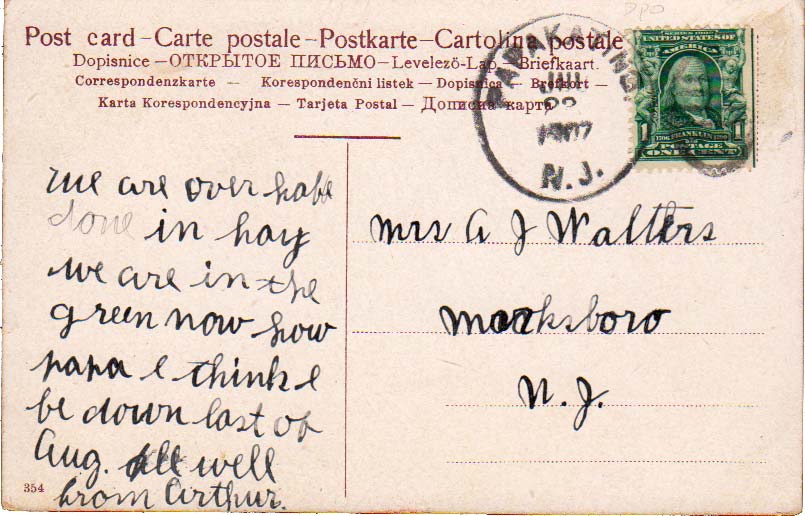 DPO
Post card – Carte postale – Postkarte – Cartolina postale
Dopisnice – ОТКРЫТОЕ ПИСЬМО – Levelező-Lap – Briefkaart.
Correspondenzkarte – Korespondenční listek – Dopisnica – Brefkort –
Karta Korespondencyjna – Tarjeta Postal – Дописна карта
PAPAKATING
JUL
1907
N.J.
SERIES 1902
UNITED STATES OF
AMERICA
1 FRANKLIN 1
POSTAGE
ONE CENT
We are over half
done in hay
we are in the
green now how
papa I think I
be down last of
Aug. All well
from Arthur.
Mrs A J Walters
Marksboro
N.J.
354